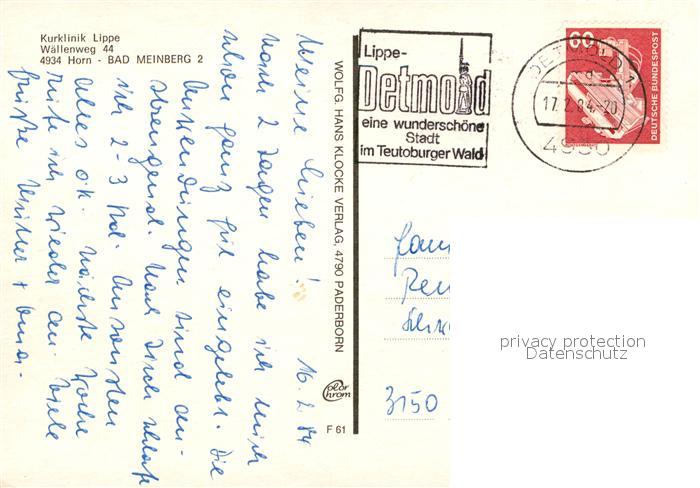 Kurklinik Lippe
Wällenweg 44
4934 Horn - BAD MEINBERG 2
16.2.84
Meine Lieben!
Nach 2 Tagen habe ich mich
schon ganz gut eingelebt. Die
Anwendungen sind an-
strengend. Nach Tisch schlafe
ich 2-3 Std. Ansonsten
alles o.k. Nächste Woche
rufe ich wieder an. Viele
Grüße Mutter + Oma.
WOLFG. HANS KLOCKE VERLAG, 4790 PADERBORN
color
chrom
F 61
Lippe-
Detmold
eine wunderschöne
Stadt
im Teutoburger Wald
DETMOLD 1
17.2.84.-20
4930
60
DEUTSCHE BUNDESPOST
Fam
3150
privacy protection
Datenschutz